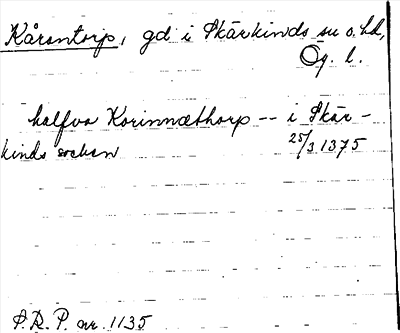 Kårantorp, gd i Skärkinds sn o. hd,
Ög. l.
halfva Korinnæthorp -- i Skär-
kinds sockan 25/3 1375
S.R.P. nr. 1135